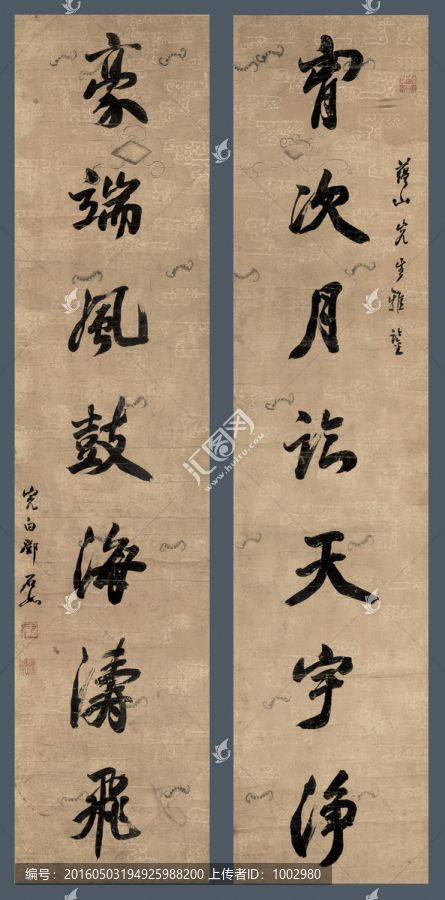 胷次月臨天宇淨
山先生雅鑒
豪端風鼓海濤飛
完白鄧石如
汇图网
www.huitu.com
编号：20160503194925988200 上传者ID：1002980